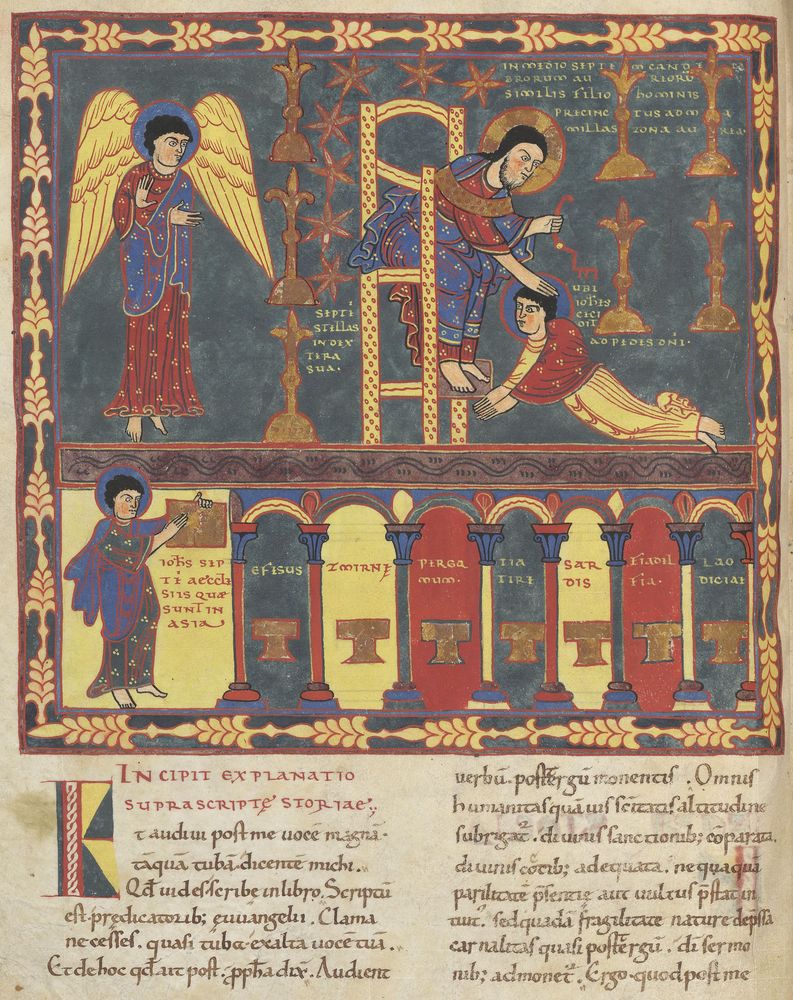 IN MEDIO SEPTE M CAND
BRORUM AU REORŪ
SIMILIS FILIO HOMINIS
PRECINC TUS AD M A
MILLAS ZONA AU REA.
SEPTĒ
STELLAS
IN DEX
TERA
SUA.
UBI
IOHĒS
CECI
DIT
AD PEDES DN̄I.
IOH̄S SEP
TĒ AECCLE
SIIS QUĘ
SUNT IN
ASIA
EFISUS
ZMIRNĘ
PERGA
MUM.
TIA
TIRE
SAR
DIS
FIADIL
FIA.
LAO
DICIAE
INCIPIT EXPLANATIO
SUPRASCRIPTĘ STORIAE;
Et audiui post me uocē magnā.
tāquā tubā dicentē michi.
Qđ uides scribe in libro. Scriptū
est predicatorib; euuangelii. Clama
ne cesses. quasi tuba exalta uocē tuā.
Et de hoc qđ ait post. ꝓpħa dix̄. Audient
uerbū. post tergū monentis. Omnis
humanitas quāuis scītatis altitudine
subrigat̄. diuinis sanctionib; cōparata.
diuinis adequata. nequaquā
parilitatē p̄sentie aut uultus p̄stat in
tuit̄. sed quadā fragilitate nature dep̄ssa
carnalitas quasi post tergū. di sermo
nib; admonet̄. Ergo quod post me